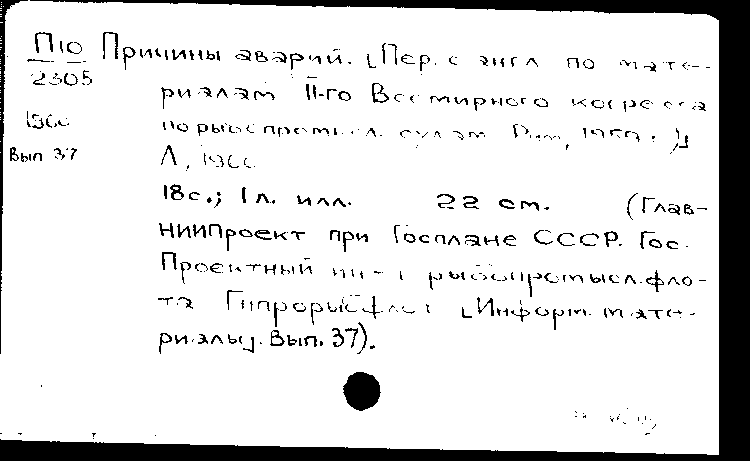 П10 Причины аварий. [Пер. с англ по мате-
2305 риалам II-го Всемирного конгресса
1960 по рыбопромысл. судам Рим, 1959г.]
Вып 37 Л, 1960
18с.; 1л. илл. 22 см. (Глав-
НИИПроект при Госплане СССР. Гос.
Проектный ин-т рыбопромысл.фло-
та Гипрорыбфлот [Информ. мате-
риалы]. Вып. 37).